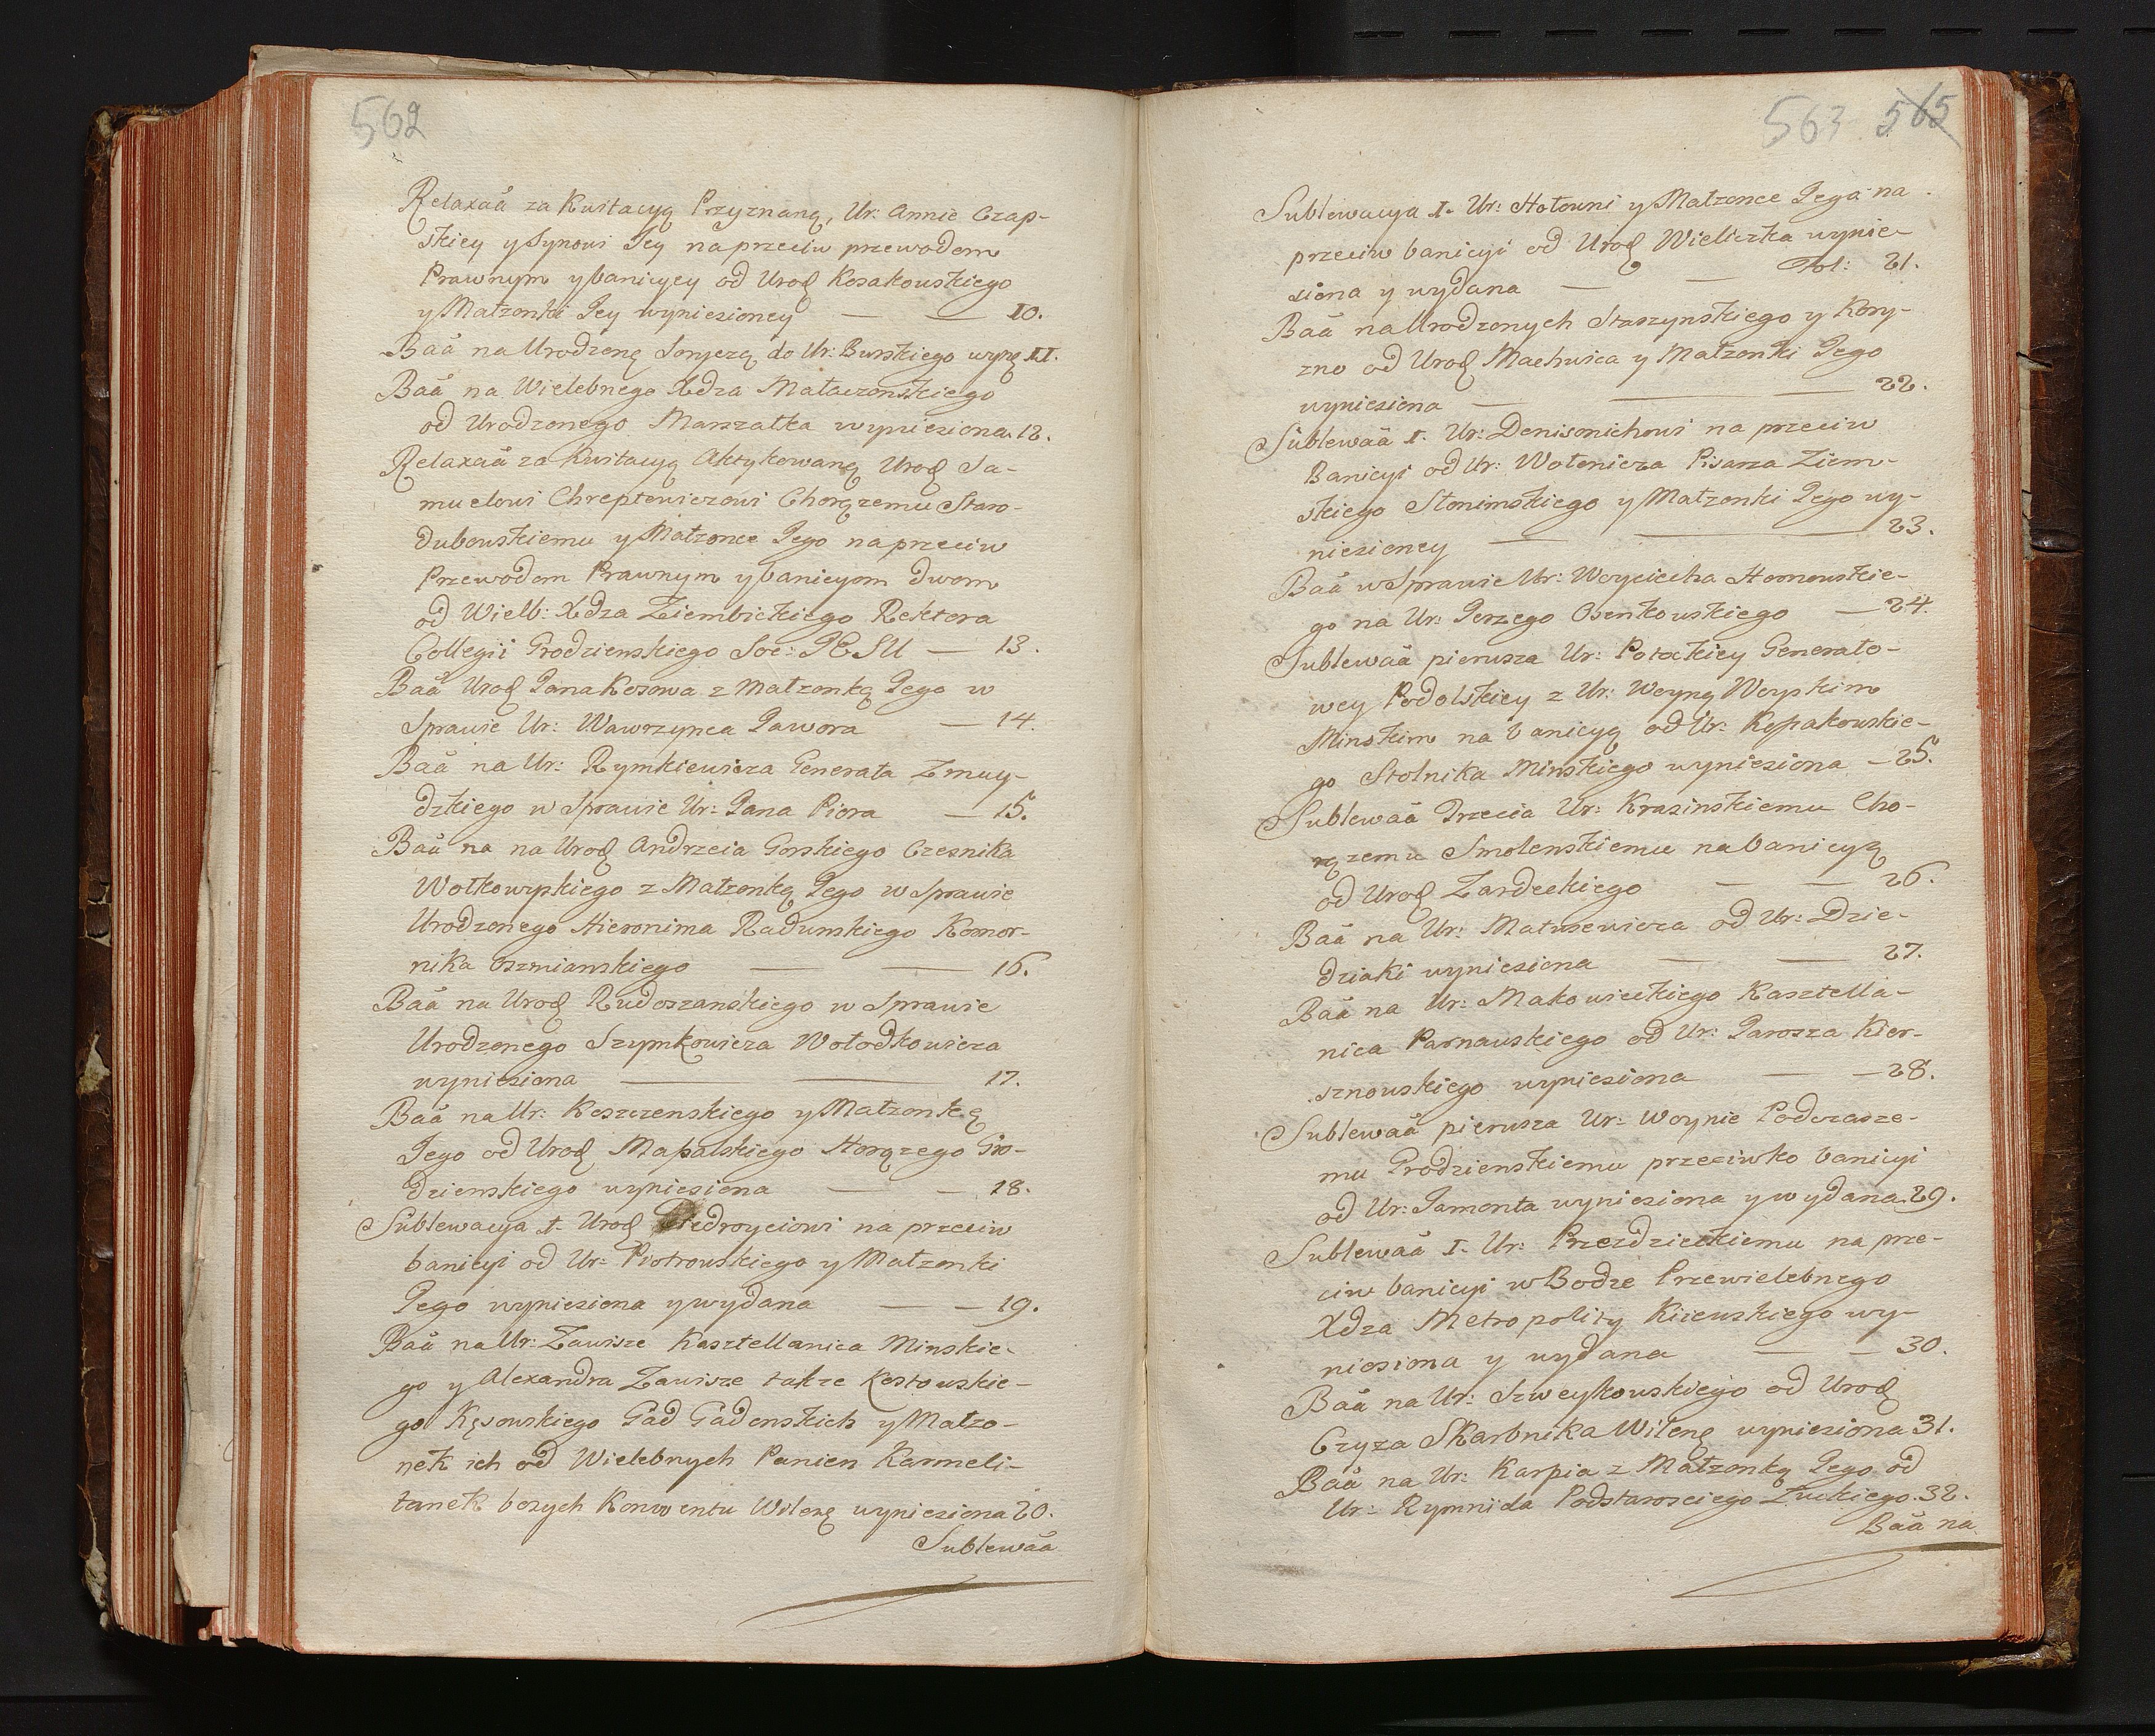 562
Relaxaã za Kwitacyą Przyznaną, Ur: Annie Czap-
skiey y Synowi Jey na przeciw przewodom
Prawnym y banicyey od Urod Kosakowskiego
y Małzonki Jey wyniesioney — — 10.
Baã na Urodzonę do Ur: Burskiego wynę 11.
Baã na Wielebnego Xdza Mataczonskiego
od Urodzonego Marszałka wyniesiona. 12.
Relaxaã za Kwitacyą Aktykowaną Urod Sa-
muelowi Chreptowiczowi Chorązemu Staro-
dubowskiemu y Małzonce Jego na przeciw
Przewodom Prawnym y banicyom dwom
od Wielb: Xdza Ziembickiego Rektora
Collegii Grodzienskiego Soc: JESU — 13.
Baã Urod Jana Kosowa z Małzonką Jego w
Sprawie Ur: Wawrzynca Jawora — 14.
Baã na Ur: Rymkiewicza Generała Zmuy-
dzkiego w Sprawie Ur: Jana Piora — 15.
Baã na na Urod Andrzeia Gorskiego Czesnika
Wołkowyskiego z Małzonką Jego w Sprawie
Urodzonego Hieronima Radunskiego Komor-
nika Oszmianskiego — — 16.
Baã na Urod Rudoszanskiego w Sprawie
Urodzonego Szymkowicza Wołodkowicza
wyniesiona — — 17.
Baã na Ur: Koszczenskiego y Małzonkę
Jego od Urod Massalskiego Horązego Gro-
dzienskiego wyniesiona — — 18.
Sublewacya 1. Urod Giedroyciowi na przeciw
banicyi od Ur: Piotrowskiego y Małzonki
Jego wyniesiona y wydana — — 19.
Baã na Ur: Zawisze Kasztellanica Minskie-
go y Alexandra Zawisze takze Kostowskie-
go Kęsowskiego Gad Gadenskich y Małzo-
nek ich od Wielebnych Panien Karmeli-
tanek bosych Konwentu Wileng wyniesiona 20.
Sublewaã
563 565
Sublewacya I. Ur: Hołowni y Małzonce Jego na
przeciw banicyi od Urod Wieliczka wynie-
siona y wydana — — Fol: 21.
Baã na Urodzonych Staszynskiego y Kory-
zno od Urod Machwica y Małzonki Jego
wyniesiona — — — 22.
Sublewaã I. Ur: Denisowichowi na przeciw
Banicyi od Ur: Wołowicza Pisarza Ziem-
skiego Słonimskiego y Małzonki Jego wy-
niesioney — — 23.
Baã w Sprawie Ur: Woyciecha Homowskie-
go na Ur: Jerzego Osenkowskiego — 24.
Sublewaã pierwsza Ur: Potockiey Generało-
wey Podolskiey z Ur: Woyną Woyskim
Minskim na banicyą od Ur: Kępakowskie-
go Stolnika Minskiego wyniesiona — 25.
Sublewaã Trzecia Ur: Krasinskiemu Cho-
rązemu Smolenskiemu na banicyą
od Urod Zardeckiego — — 26.
Baã na Ur: Matusewicza od Ur: Dzie-
dziaki wyniesiona — — 27.
Baã na Ur: Makowieckiego Kasztella-
nica Parnawskiego od Ur: Jarosza Kier-
sznowskiego wyniesiona — — 28.
Sublewaã pierwsza Ur: Woynie Podczasze-
mu Grodzienskiemu przeciwko banicyi
od Ur: Jamonta wyniesiona y wydana. 29.
Sublewaã I. Ur: Przezdzieckiemu na prze-
ciw banicyi w Bodze Przewielebnego
Xdza Metropolity Kiiewskiego wy-
niesiona y wydana — — 30.
Baã na Ur: Szweykowskiego od Urod
Czyza Skarbnika Wileng wyniesiona 31.
Baã na Ur: Karpia z Małzonką Jego od
Ur: Rymnida Podstarosciego Zuckiego. 32.
Baã na